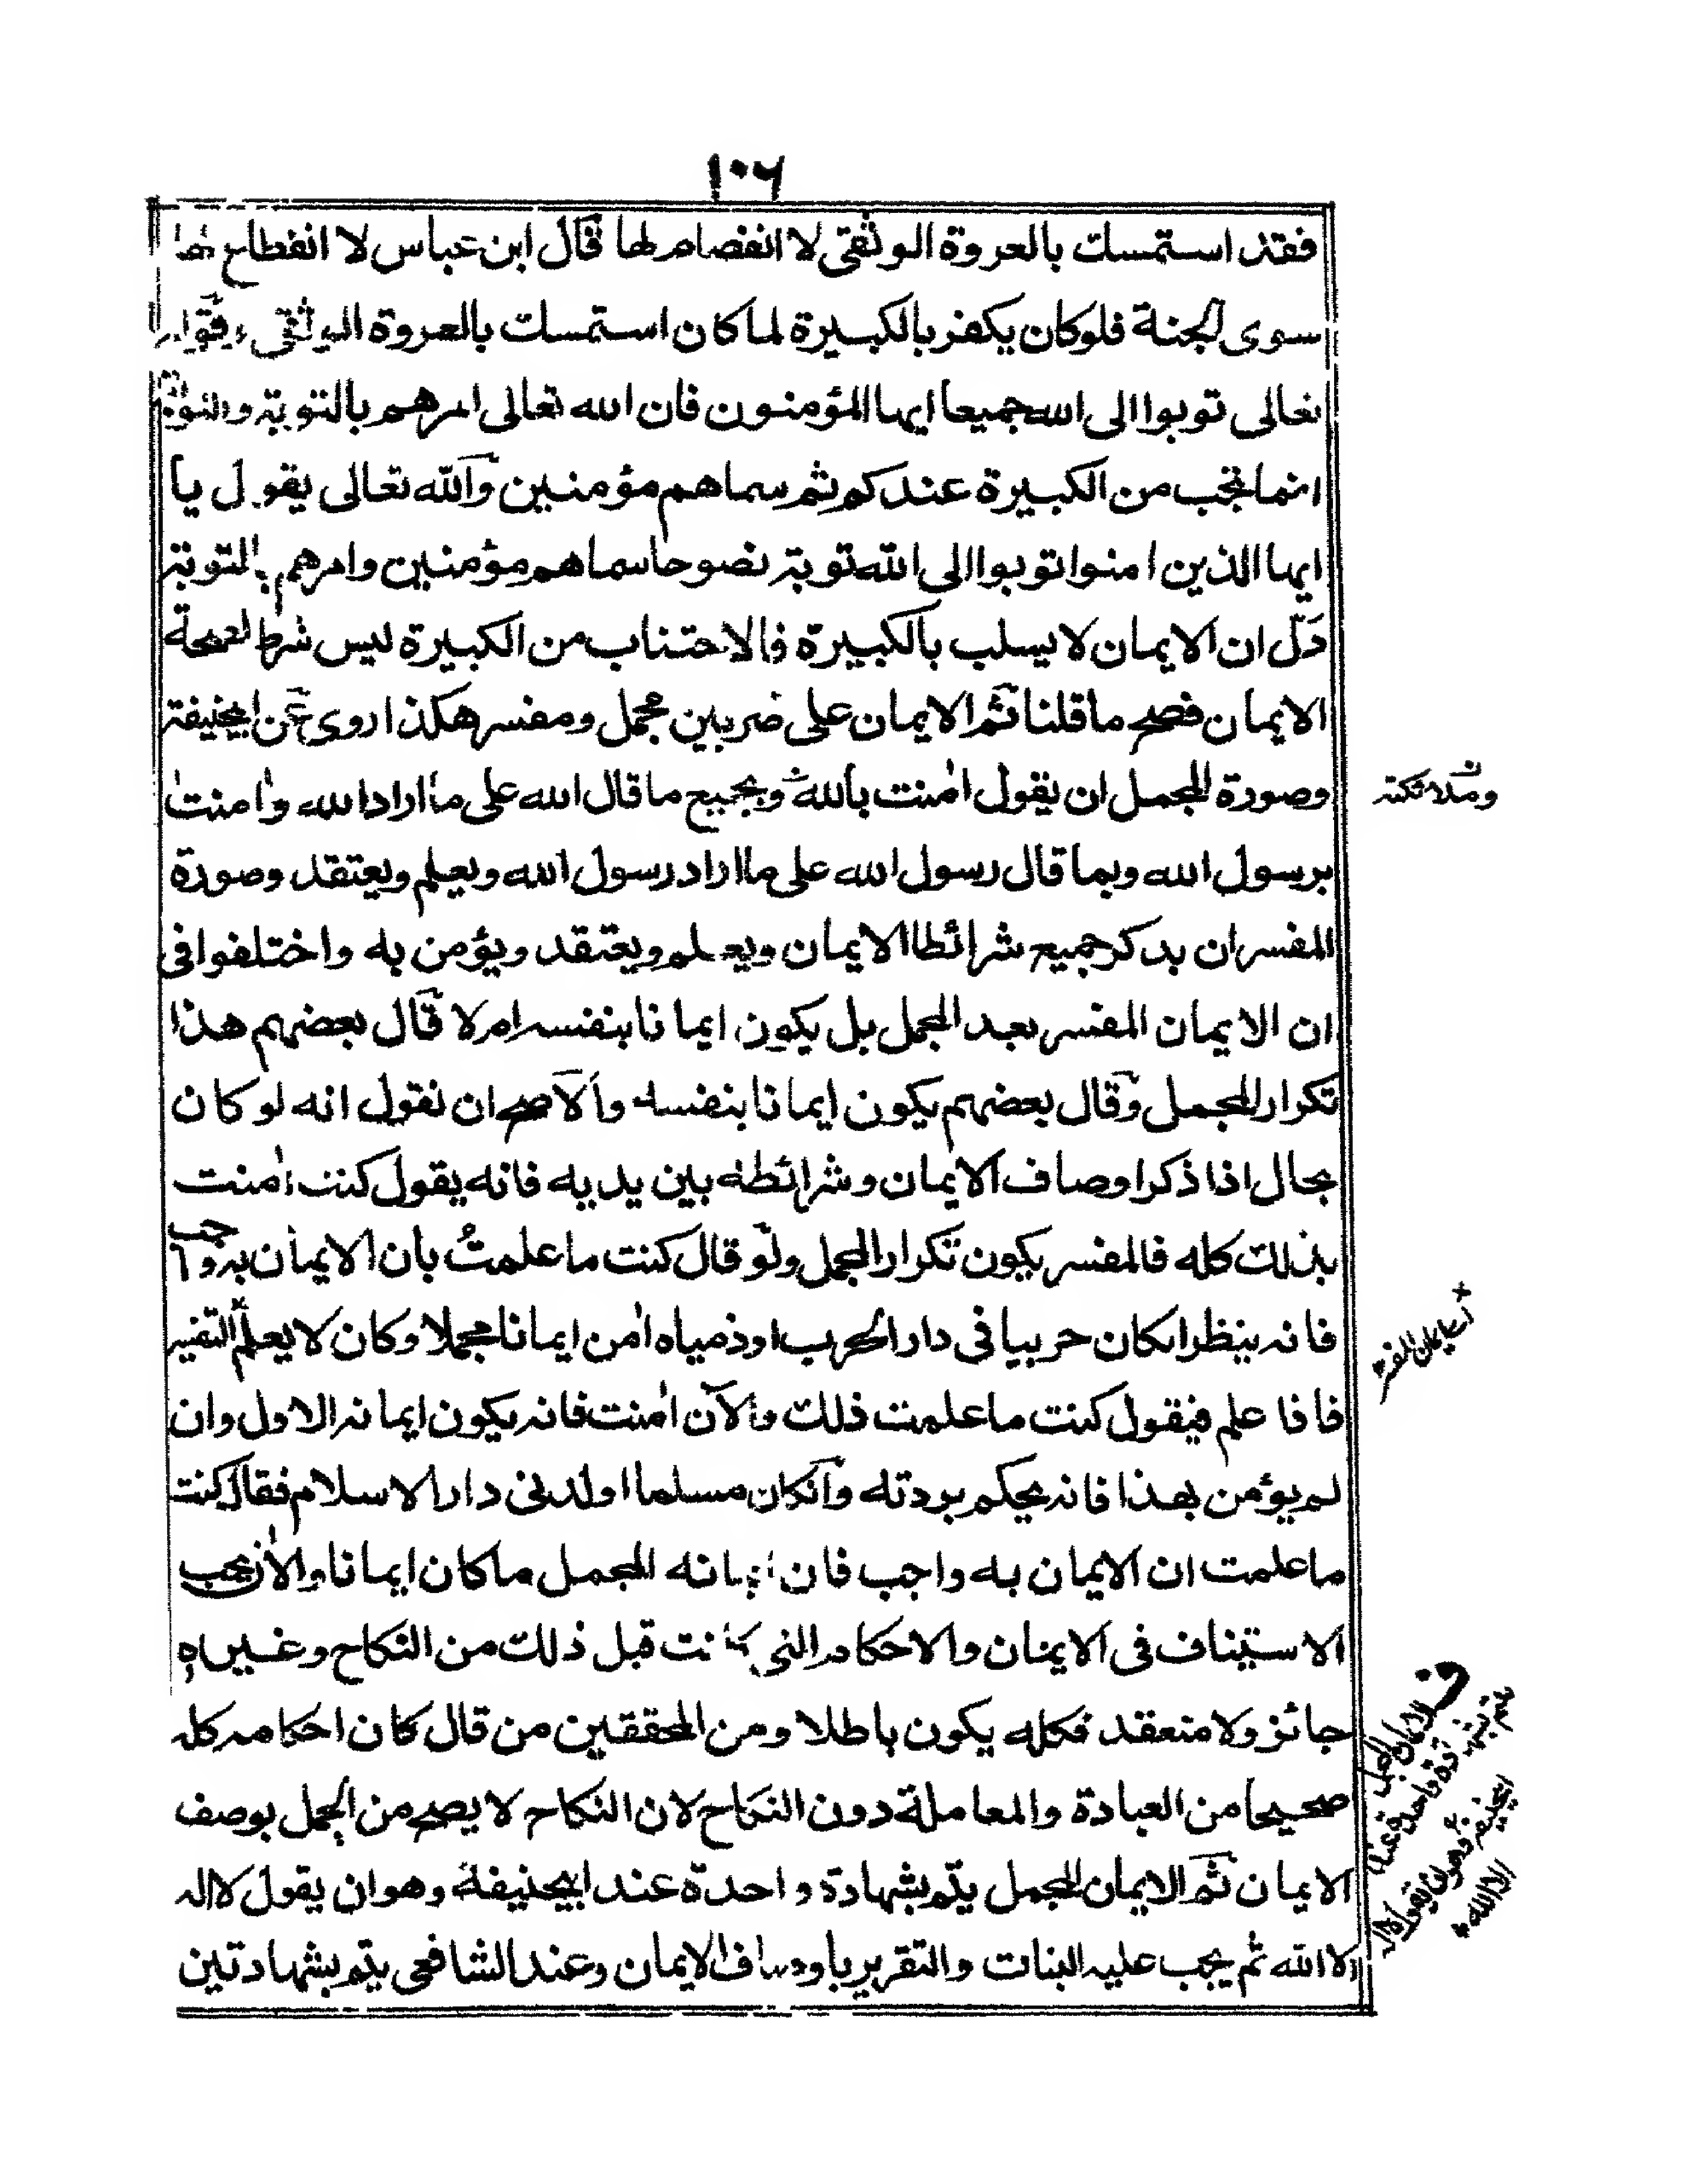 ١٠٦
فقد استمسك بالعروة الوثقى لا انفصام لها قال ابن عباس لا انقطاع لها
سوى الجنة فلو كان يكفر بالكبيرة لما كان استمسك بالعروة الوثقى وقوله
تعالى توبوا الى الله جميعا ايها المؤمنون فان الله تعالى امرهم بالتوبة والتوبة
انما تجب من الكبيرة عندكم ثم سماهم مؤمنين والله تعالى يقول يا
ايها الذين امنوا توبوا الى الله توبة نصوحا سماهم مؤمنين وامرهم بالتوبة
دل ان الايمان لا يسلب بالكبيرة فالاجتناب من الكبيرة ليس شرط لصحة
الايمان فصح ما قلنا ثم الايمان على ضربين مجمل ومفسر هكذا روى عن ابيحنيفة
وصورة المجمل ان يقول امنت بالله وبجميع ما قال الله على ما اراد الله وامنت
وملائكته
برسول الله وبما قال رسول الله على ما اراد رسول الله ويعلم ويعتقد وصورة
المفسر ان يدكر جميع شرائطا الايمان ويعلم ويعتقد ويؤمن به واختلفوا فى
ان الايمان المفسر بعد المجمل بل يكون ايمانا بنفسه ام لا قال بعضهم هذا
تكرار للمجمل وقال بعضهم يكون ايمانا بنفسه والاصح ان نقول انه لو كان
بحال اذا ذكر اوصاف الايمان وشرائطه بين يديه فانه يقول كنت امنت
بذلك كله فالمفسر يكون تكرار المجمل ولو قال كنت ما علمت بان الايمان به واجب
فانه ينظر انكان حربيا فى دار الحرب او ذمياه امن ايمانا مجملا وكان لا يعلم التفسير
اى ايمان المفسر
فاذا علم فيقول كنت ما علمت ذلك والآن امنت فانه يكون ايمانه الاول وان
لم يؤمن بهذا فانه يحكم بردته وانكان مسلما اولد فى دار الاسلام فقال كنت
ما علمت ان الايمان به واجب فان ايمانه المجمل ما كان ايمانا والآن يجب
الاستيناف فى الايمان والاحكام التى كانت قبل ذلك من النكاح وغيره
جائز ولا منعقد فكله يكون باطلا ومن المحققين من قال كان احكامه كله
صحيحا من العبادة والمعاملة دون النكاح لان النكاح لا يصح من الجمل بوصف
الايمان ثم الايمان المجمل يتم بشهادة واحدة عند ابيحنيفة وهو ان يقول لا اله
الا الله ثم يجب عليه الثبات والتقرير باوصاف الايمان وعند الشافعى يتم بشهادتين
ف الايمان المجمل
يتم بشهادة واحدة عند
ابيحنيفه وهو ان يقول لا اله
الا الله